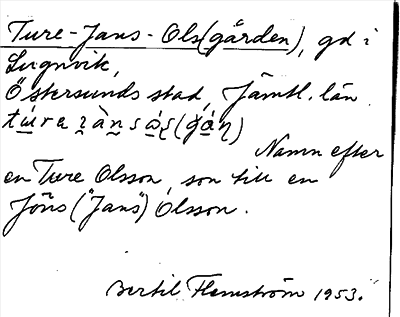 Ture-Jans-Ols(gården), gd i
Lugnvik,
Östersunds stad, Jämtl. län.
Namn efter
en Ture Olsson, son till en
Jöns ("Jans") Olsson.
Bertil Flemström 1953.